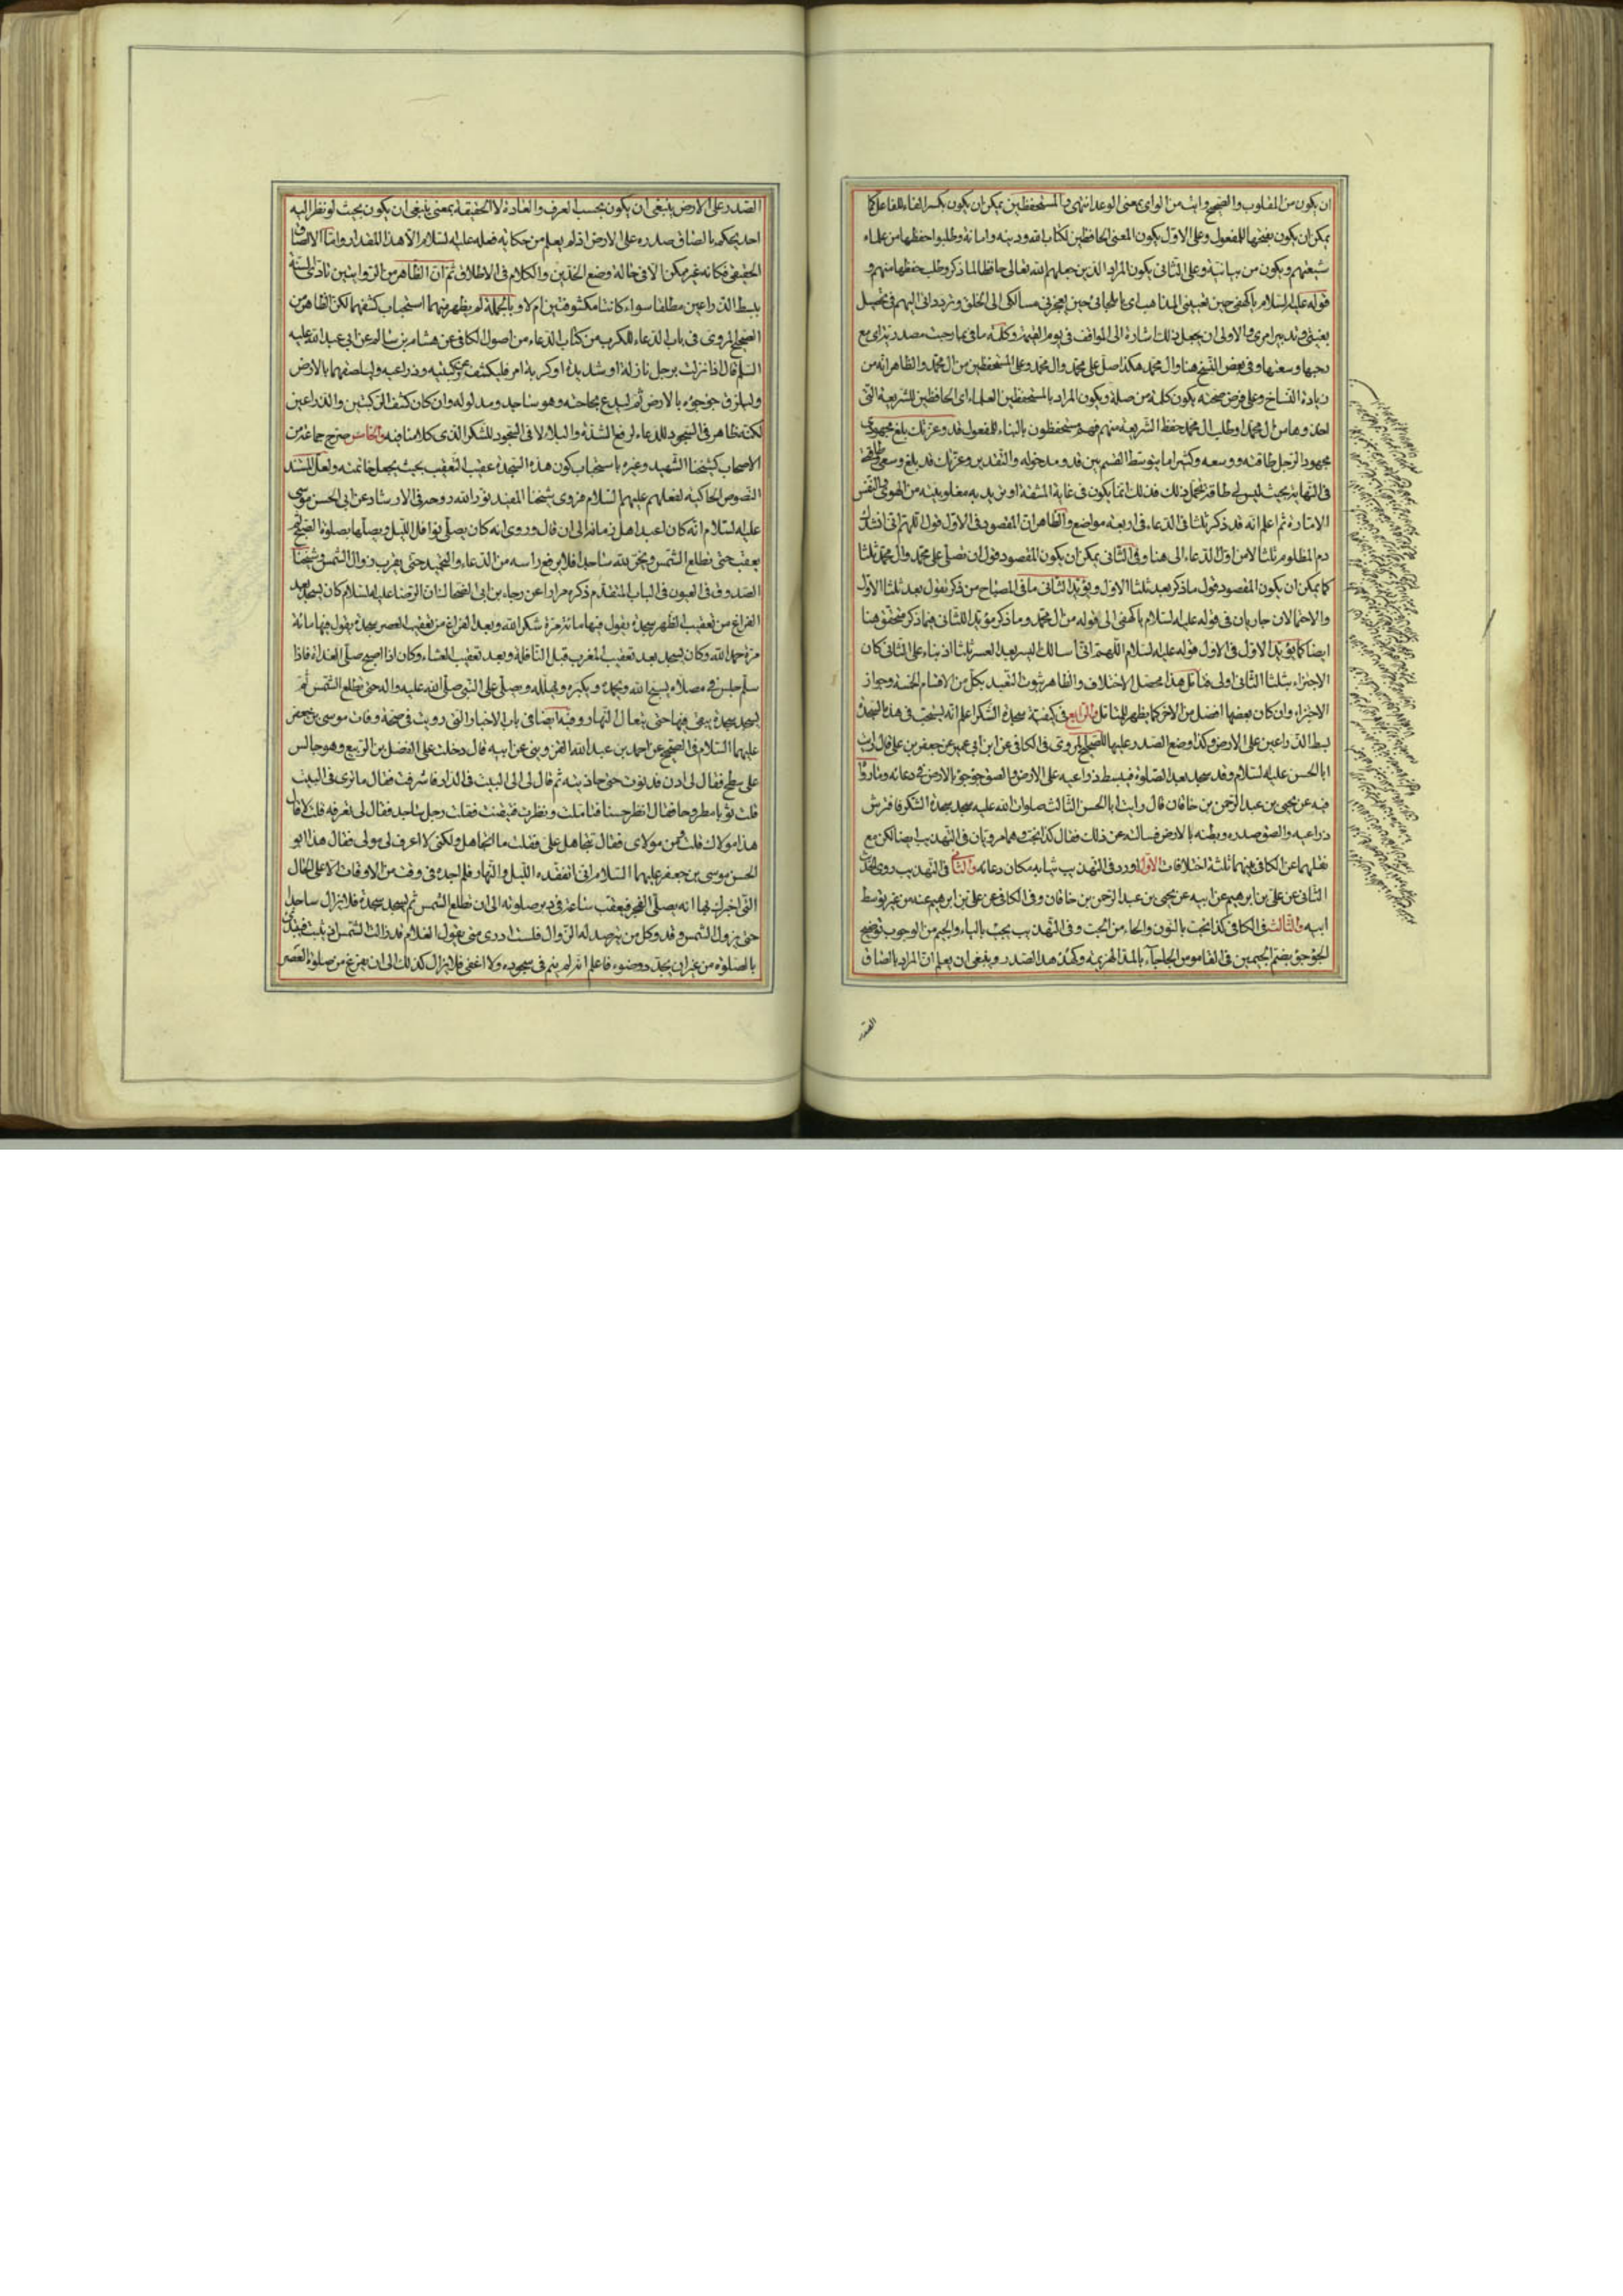 ان يكون من المقلوب والصحيح وايت من الواى بمعنى الوعد انتهى والمستحفظين يمكن ان يكون بكسر الفاء للفاعل كما
يمكن ان يكون بفتحها للمفعول وعلى الاول يكون المعنى الحافظين لكتاب الله ودينه وامانة وطلبوا حفظها من علماء
شيعتهم ويكون من بيانية وعلى الثانى يكون المراد الذين جعلهم الله تعالى حافظا لما ذكر وطلب حفظها منهم و
قوله عليه السلام يا كهفى حين تعيينى المذاهب اى يا ملجائى حين يعجزنى مسالكى الى الخلق وترددانى اليهم فى تحصيل
بغيتى وتدبير امرى والاولى ان يجعل ذلك اشارة الى المواقف فى يوم القيمة وكلمة ما فى بما رحبت مصدرية اى مع
رحبها وسعتها وفى بعض النسخ هنا وال محمد هكذا صل على محمد وال محمد وعلى المستحفظين من ال محمد والظاهر انه من
زيادة النساخ وعلى فرض صحته يكون كلمة من صلة ويكون المراد بالمستحفظين العلماء اى الحافظين للشريعة التى
اخذوها من ال محمد او طلب ال محمد حفظ الشريعة منهم فهم مستحفظون بالبناء للمفعول قد وعزتك بلغ مجهودى
مجهود الرجل طاقته ووسعه وكثيرا ما يتوسط القسم بين قد ومدخوله والتقدير وعزتك قد بلغ وسعى وطاقتى
فى النهاية بحيث ليس لى طاقة لتحمل ذلك فذلك انما يكون فى غاية المشقة او يريد به مغلوبيته من الهوى والنفس
الامارة ثم اعلم انه قد ذكر ثلثا فى الدعاء فى اربعة مواضع والظاهر ان المقصود فى الاول قول اللهم انى انشدك
دم المظلوم ثلثا لا من اول الدعاء الى هنا وفى الثانى يمكن ان يكون المقصود قول ان تصلى على محمد وال محمد ثلثا
كما يمكن ان يكون المقصود قول ما ذكر بعد ثلثا الاول ويؤيد الثانى ما فى المصباح من ذكر تقول بعد ثلثا الاول
والاحتمالان جاريان فى قوله عليه السلام يا كهفى الى قوله من ال محمد وما ذكر مؤيدا للثانى فيما ذكر متحقق هنا
ايضا كما يؤيد الاول فى الاول قوله عليه السلام اللهم انى اسالك اليسر بعد العسر ثلثا اذ بناء على الثانى كان
الاجتزاء بثلثا الثانى اولى فتامل هذا محصل الاختلاف والظاهر ثبوت التقييد بكل من الاقسام الخمسة وجواز
الاجتزاء وان كان بعضها افضل من الاخر كما يظهر للمتامل والرابع فى كيفية سجدة الشكر اعلم انه يستحب فى هذه السجدة
بسط الذراعين على الارض وكذا وضع الصدر عليها للصحيح المروى فى الكافى عن ابن ابى عمير عن جعفر بن على قال رايت
ابا الحسن عليه السلام وقد سجد بعد الصلوة فبسط ذراعيه على الارض والصق جؤجؤه بالارض فى دعائه وما روا
فيه عن يحيى بن عبد الرحمن بن خاقان قال رايت ابا الحسن الثالث صلوات الله عليه سجد سجدة الشكر فافترش
ذراعيه والصق صدره وبطنه بالارض فسالته عن ذلك فقال كذا نحت وهما مرويان فى التهذيب ايضا لكن مع
نقلهما عن الكافى فيهما ثلثة اختلافات الاول اورد فى التهذيب ثيابه مكان دعائه والثانى فى التهذيب روى الحديث
الثانى عن على بن ابرهيم عن ابيه عن يحيى بن عبد الرحمن بن خاقان وفى الكافى عن على بن ابرهيم عنه من غير توسط
ابيه والثالث فى الكافى كذا نحت بالنون والحاء من النحت وفى التهذيب يجب بالياء والجيم من الوجوب توضيح
الجؤجؤ بضم الجيمين فى القاموس الجاجاء بالمد الهزيمة وكهدهد الصدر وينبغى ان يعلم ان المراد بالصاق
الصدر
الصدر على الارض ينبغى ان يكون بحسب العرف والعادة لا الحقيقة بمعنى ينبغى ان يكون بحيث لو نظر اليه
احد يحكم بالصاق صدره على الارض اذ لم يعلم من حكاية فعله عليه السلام الا هذا المقدار واما الالصاق
الحقيقى فكانه غير ممكن الا فى حالة وضع الخدين والكلام فى الاطلاق ثم ان الظاهر من الروايتين تادى السنة
ببسط الذراعين مطلقا سواء كانتا مكشوفتين ام لا وبالجملة لم يظهر منهما استحباب كشفهما لكن الظاهر من
الصحيح المروى فى باب الدعاء للكرب من كتاب الدعاء من اصول الكافى عن هشام بن سالم عن ابى عبد الله عليه
السلم قال اذا نزلت برجل نازلة او شديدة او كربه امر فليكشف عن ركبتيه وذراعيه وليلصقهما بالارض
وليلزق جؤجؤه بالارض ثم ليدع بحاجته وهو ساجد ومدلوله وان كان كشف الركبتين والذراعين
لكنه ظاهر فى السجود للدعاء لرفع الشدة والبلاء لا فى السجود للشكر الذى كلامنا فيه والخامس صرح جماعة من
الاصحاب كشيخنا الشهيد وغيره باستحباب كون هذه السجدة عقيب التعقيب بحيث يجعل خاتمته ولعل المستند
النصوص الحاكية لفعلهم عليهم السلام فروى شيخنا المفيد نور الله روحه فى الارشاد عن ابى الحسن موسى
عليه السلام انه كان اعبد اهل زمانه الى ان قال وروى انه كان يصلى نوافل الليل ويصلها بصلوة الصبح ثم
يعقب حتى تطلع الشمس ويخر لله ساجدا فلا يرفع راسه من الدعاء والتحميد حتى يقرب زوال الشمس وشيخنا
الصدوق فى العيون فى الباب المتقدم ذكره مرارا عن رجاء بن ابى الضحاك ان الرضا عليه السلام كان يسجد بعد
الفراغ من تعقيب الظهر سجدة يقول فيها مائة مرة شكرا لله وبعد الفراغ من تعقيب العصر سجدة يقول فيها مائة
مرة حمدا لله وكان يسجد بعد تعقيب المغرب قبل النافلة وبعد تعقيب العشاء وكان اذا اصبح صلى الغداة فاذا
سلم جلس فى مصلاه يسبح الله ويحمده ويكبره ويهلله ويصلى على النبى صلى الله عليه واله حتى تطلع الشمس ثم
يسجد سجدة يبقى فيها حتى يتعال النهار وفيه ايضا فى باب الاخبار التى رويت فى صحة وفات موسى بن جعفر
عليهما السلام فى الصحيح عن احمد بن عبد الله القروى عن ابيه قال دخلت على الفضل بن الربيع وهو جالس
على سطح فقال لى ادن فدنوت حتى حاذيته ثم قال لى الى البيت فى الدار فاشرفت فقال ما ترى فى البيت
قلت ثوبا مطروحا فقال انظر حسنا فتاملت ونظرت فتيقنت فقلت رجل ساجد فقال لى تعرفه قلت لا قال
هذا مولاك قلت ومن مولاى فقال تتجاهل على فقلت ما اتجاهل ولكنى لا اعرف لى مولى فقال هذا ابو
الحسن موسى بن جعفر عليهما السلام انى اتفقده الليل والنهار فلم اجده فى وقت من الاوقات الا على الحال
التى اخبرك بها انه يصلى الفجر فيعقب ساعة فى دبر صلوته الى ان تطلع الشمس ثم يسجد سجدة فلا يزال ساجدا
حتى تزول الشمس وقد وكل من يترصد له الزوال فلست ادرى متى يقول الغلام قد زالت الشمس اذ يثب فيبتدئ
بالصلوة من غير ان يجدد وضوء فاعلم انه لم ينم فى سجوده ولا اغفى فلا يزال كذلك الى ان يفرغ من صلوة العصر